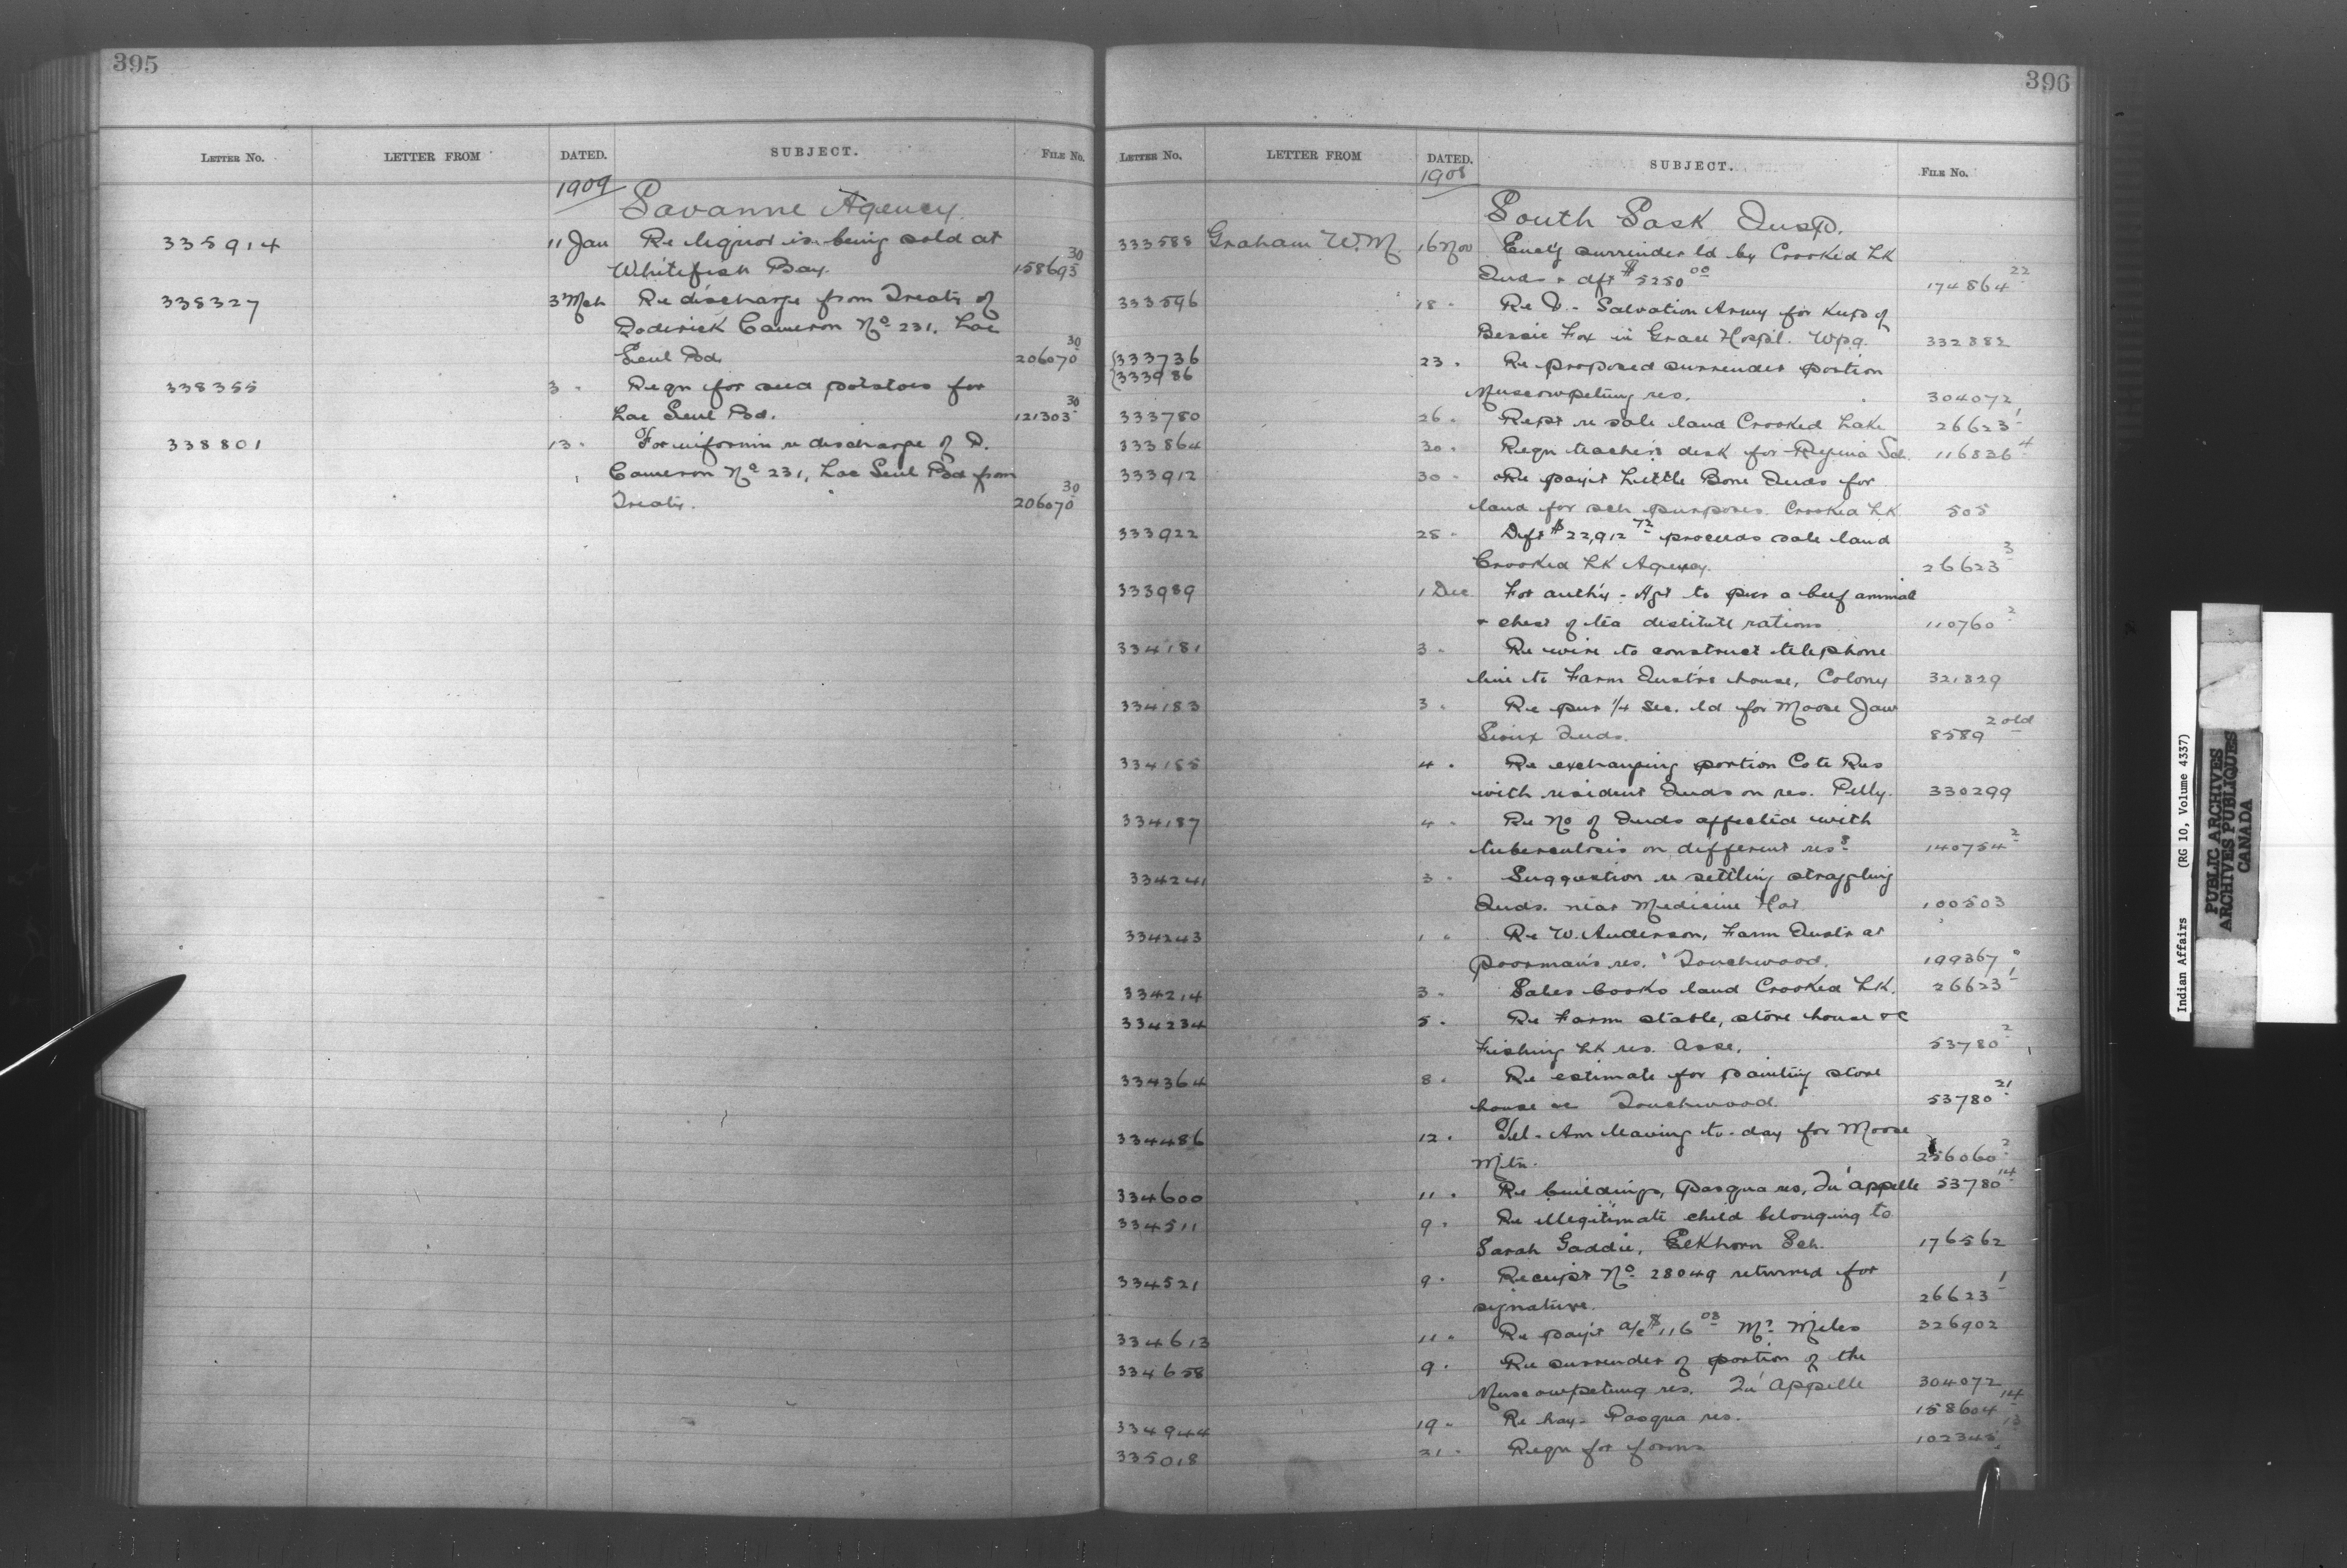 395
LETTER NO. LETTER FROM DATED. SUBJECT. FILE NO.
1909 Savanne Agency
335914 11 Jan Re liquor is being sold at
Whitefish Bay. 158693 30
338327 3 Mch Re discharge from Treaty of
Roderick Cameron No 231, Lac
Seul Bd. 206070 30
338355 3 " Reqn for seed potatoes for
Lac Seul Bd. 121303 30
338801 13 " For informin re discharge of R.
Cameron No 231, Lac Seul Bd from
Treaty. 206070 30
396
LETTER NO. LETTER FROM DATED. SUBJECT. FILE NO.
1908 South Sask Insp.
333588 Graham W.M. 16 Nov Encl'g surrender ld by Crooked Lk
Inds & dft $5250 00 174864 22
333596 18 " Re - Salvation Army for keep of
Bessie Fox in Grace Hospl. Wpg. 332882
333736
333986 23 " Re proposed surrender portion
Muscowpetung res. 304072
333780 26 " Rept re sale land Crooked Lake 26623 1
333864 30 " Reqn teacher's desk for Regina Sch. 116836 4
333912 30 " Re pay't Little Bone Inds for
land for sch purposes. Crooked Lk 505
333922 28 " Dft $22,912 72 proceeds sale land
Crooked Lk Agency. 26623 3
333989 1 Dec For auth'y - Agt to pur a beef animal
& chest of tea destitute rations 110760 2
334181 3 " Re wire to construct telephone
line to Farm Instr's house, Colony 321829
334183 3 " Re pur 1/4 Sec. ld for Moose Jaw
Sioux Inds. 8589 2 old
334185 4 " Re exchanging portion Cote Res
with resident Inds on res. Pelly. 330299
334187 4 " Re No of Inds affected with
tuberculosis on different ress. 140754 2
334241 3 " Suggestion re settling straggling
Inds. near Medicine Hat. 100503
334243 1 " Re W. Anderson, Farm Instr at
Poorman's res. Touchwood. 199367
334214 3 " Sales books land Crooked Lk. 26623 1
334234 5 " Re Farm stable, store house &c
Fishing Lk res. Asse. 53780 2
334364 8 " Re estimate for painting store
house &c Touchwood. 53780 21
334486 12 " Tel - Am leaving to-day for Moose
Mtn. 256060 2
334600 11 " Re buildings, Pasqua res, Qu'Appelle 53780 14
334511 9 " Re illegitimate child belonging to
Sarah Gaddie, Elkhorn Sch. 176562
334521 9 " Receipt No 28049 returned for
signature. 26623 1
334613 11 " Re pay't a/c $116 03 Mr Miles 326902
334658 9 " Re surrender of portion of the
Muscowpetung res. Qu'Appelle 304072
334944 19 " Re hay - Pasqua res. 158604 14
335018 21 " Reqn for forms 102345 13
Indian Affairs (RG 10, Volume 4337)
PUBLIC ARCHIVES
ARCHIVES PUBLIQUES
CANADA